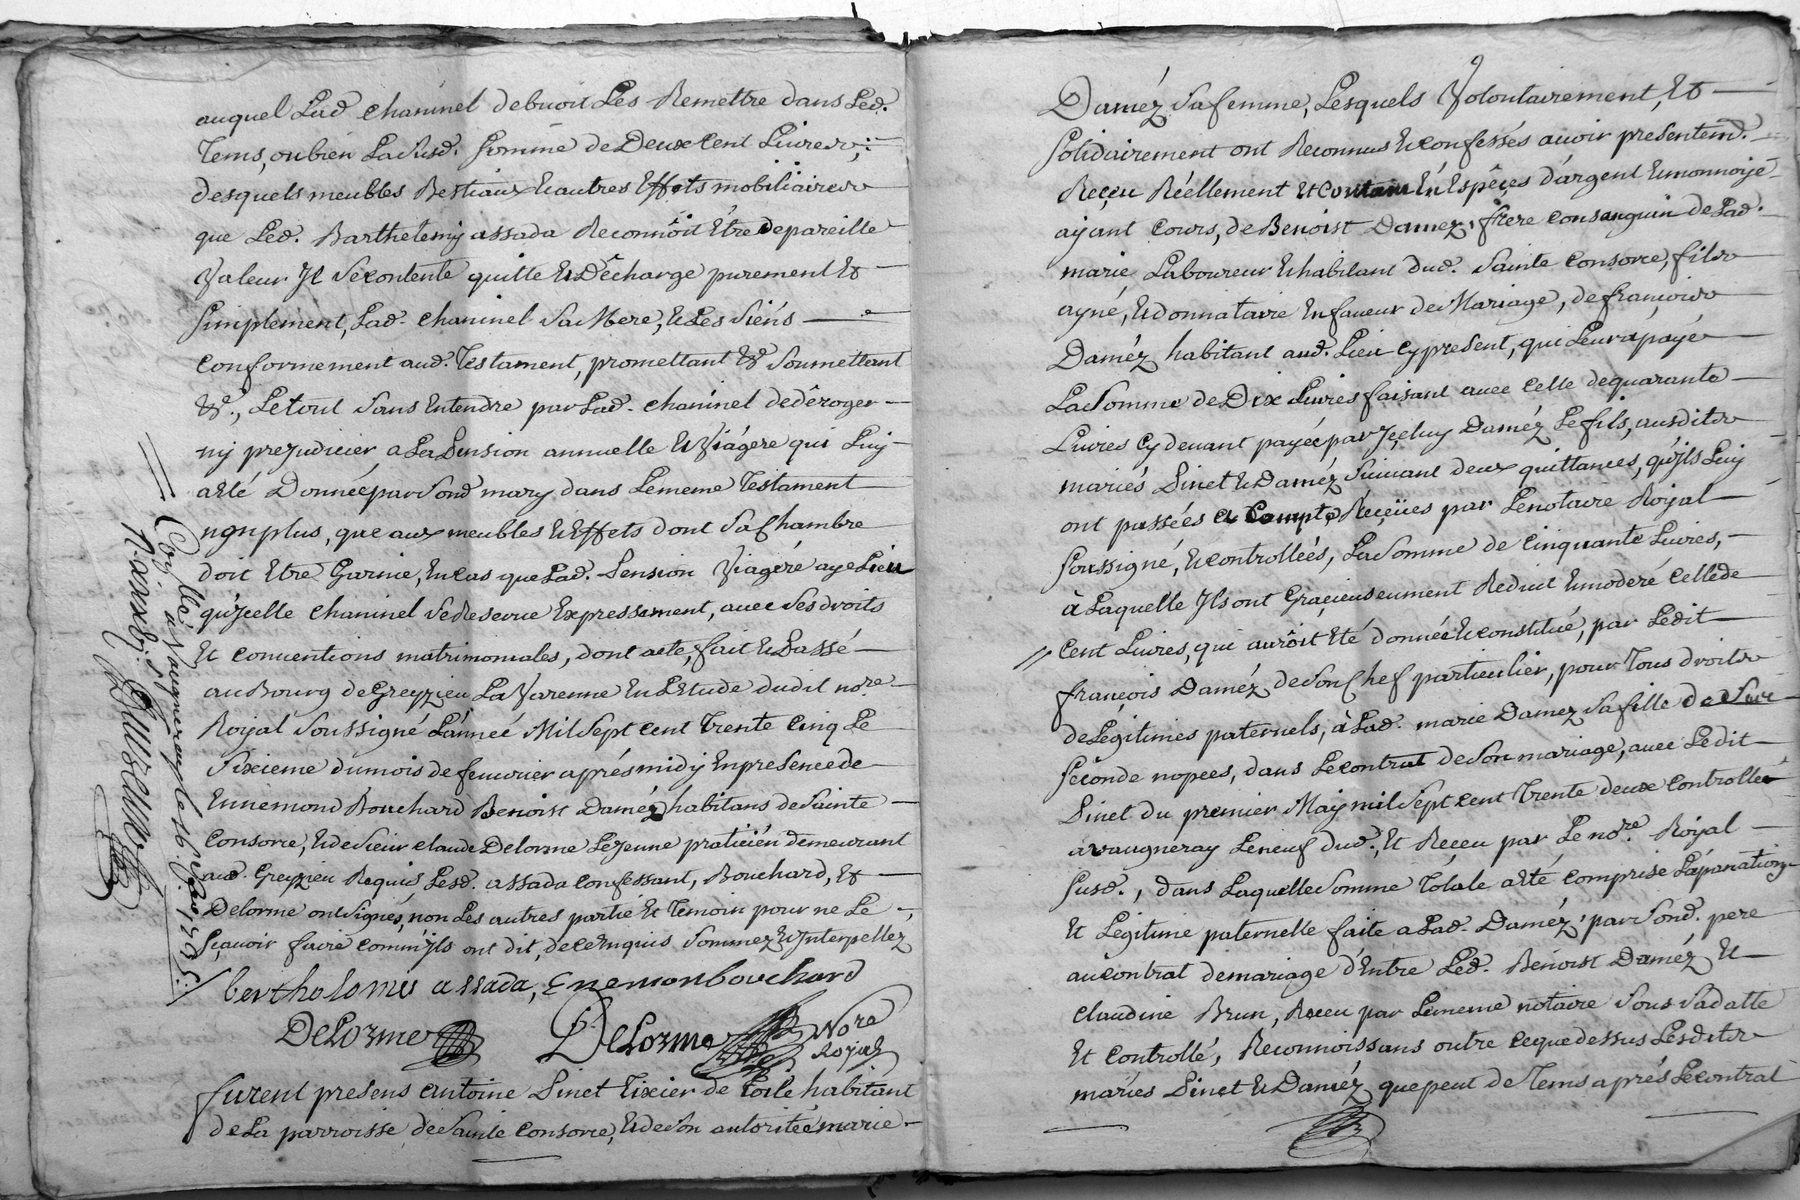 auquel Lad. chaninel debvoit Les Remettre dans Led.
Tems, ou bien La susd. somme de Deux cent Livres;
desquels meubles Bestiaux & autres Effets mobiliaires
que Led. Barthelemy assada Reconnoit Être de pareille
valeur Il se contente quitte & Décharge purement Et
simplement, Lad. chaninel sa Mere, & Les siens
conformement aud. Testament, promettant &c. soumettant
&c., Le tout sans Entendre par Lad. chaninel de déroger
ny prejudicier a La Pension annuelle & viagere qui Luy
a Eté Donnée par sond. mary dans Le meme Testament
non plus, que aux meubles & Effets dont sa Chambre
doit Etre Garnie, En cas que Lad. Pension viagére aye Lieu
qu'Jcelle chaninel se Reserve Expressement, avec ses droits
Et conventions matrimoniales, dont acte, fait & Passé
au Bourg de Greyzieu La Varenne En L'Etude dudit nore.
Royal soussigné L'année Mil sept cent trente cinq Le
sixieme du mois de fevvrier aprés midy En presence de
Ennemond Bouchard Benoist Daméz habitans de Sainte
Consorce, & de sieur claude Delorme Le Jeune praticién demeurant
aud. Greyzieu Requis Lesd. assada confessant, Bouchard, Et
Delorme ont signés, non Les autres partie Et temoin pour ne Le
sçavoir faire comm'jls ont dit, de ce Enquis sommez & Interpellez
bertholomis assada, Enemonbouchard
DeLorme DeLorme Nore
Royal
furent presens antoine Pinet Tixier de toile habitant
de La parroisse de Sainte Consorce, & de son autoritée marie
Conllé à Vaugneray le 16. 1735.
Daméz sa femme, Lesquels Volontairement, Et
solidairement ont Reconnus & confessés avoir presentemt.
Reçeu Réellement Et contant En Espêces d'argent & monnoyé
ayant Cours, de Benoist Damez, frere consanguin de Lad.
marie Laboureur & habitant dud. Sainte Consorce, fils
ayné, & donnataire En faveur de Mariage, de françois
Daméz habitant aud. Lieu cy present, qui Leur a payé
La Somme de Dix Livres faisant avec celle de quarante
Livres Cy devant payée par Jçeluy Daméz Le fils, ausdits
mariés Pinet & Daméz suivant deux quittances, qu'jls Luy
ont passées a Compte Reçeües par Le notaire Royal
soussigné, & controlleés, La Somme de cinquante Livres,
à Laquelle Jls ont Graçieusement Reduit & moderé celle de
Cent Livres, qui avrôit Eté donnée & constitué, par Ledit
françois Daméz de son Chef particulier, pour tous droits
de Légitimes paternels, à Lad. marie Damez sa fille
seconde nopces, dans Le contrat de son mariage, avec Ledit
Pinet du premier May mil sept cent trente deux controllé
a vaugneray Le neuf dud., Et Reçeu par Le nore. Royal
susd., dans Laquelle somme totale a Eté comprise
Et Légitime paternelle faite a Lad. Daméz, par sond. pere
au contrat de mariage d'Entre Led. Benoist Daméz Et
claudine Brun, Reçeu par Le meme notaire sous sa datte
Et controllé, Reconnoissans outre ce que dessus Lesdits
mariés Pinet & Daméz que peut de Tems aprés Le contrat